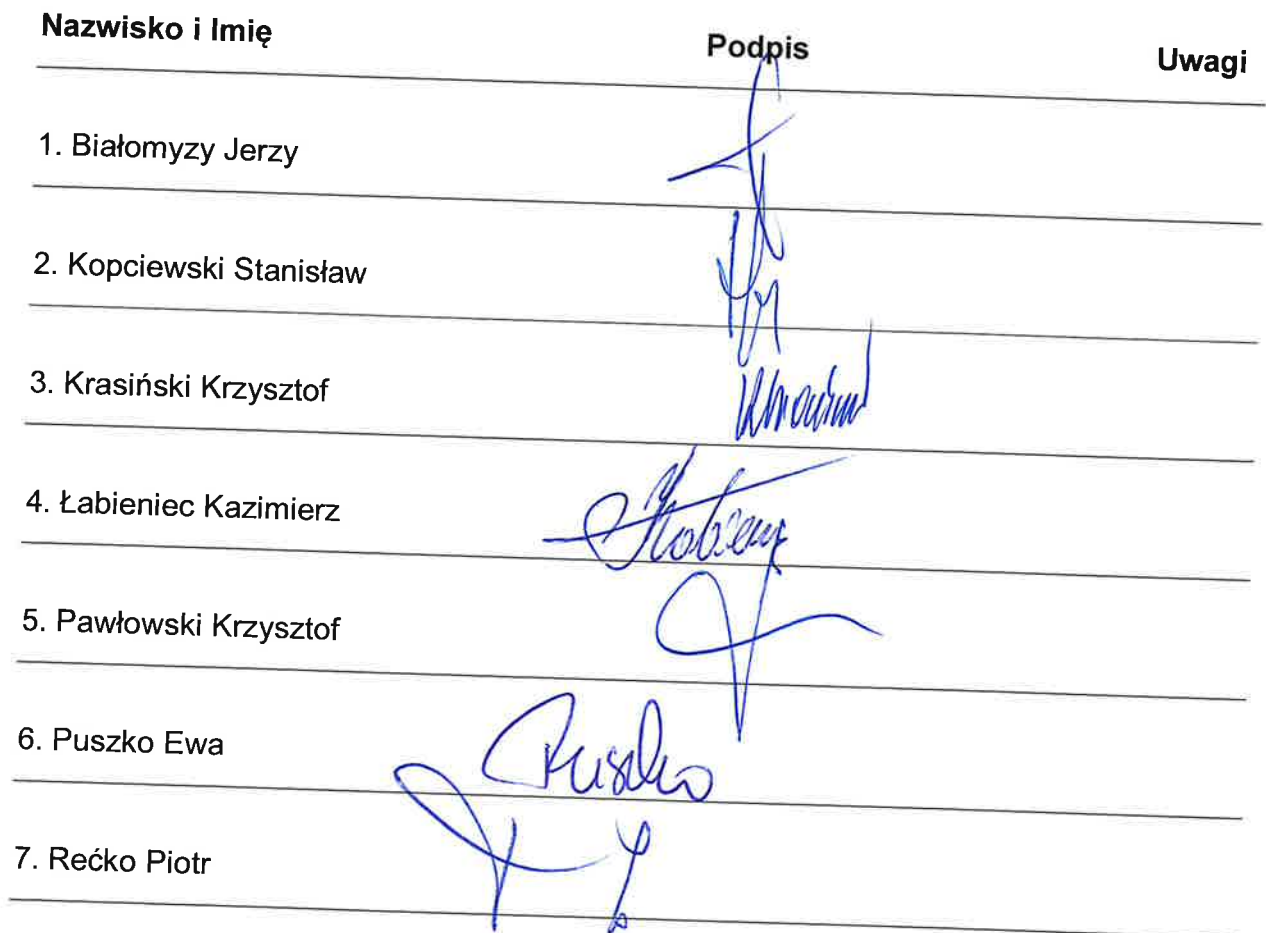 Nazwisko i Imię Podpis Uwagi
1. Białomyzy Jerzy
2. Kopciewski Stanisław
3. Krasiński Krzysztof
4. Łabieniec Kazimierz
5. Pawłowski Krzysztof
6. Puszko Ewa Puszko
7. Rećko Piotr